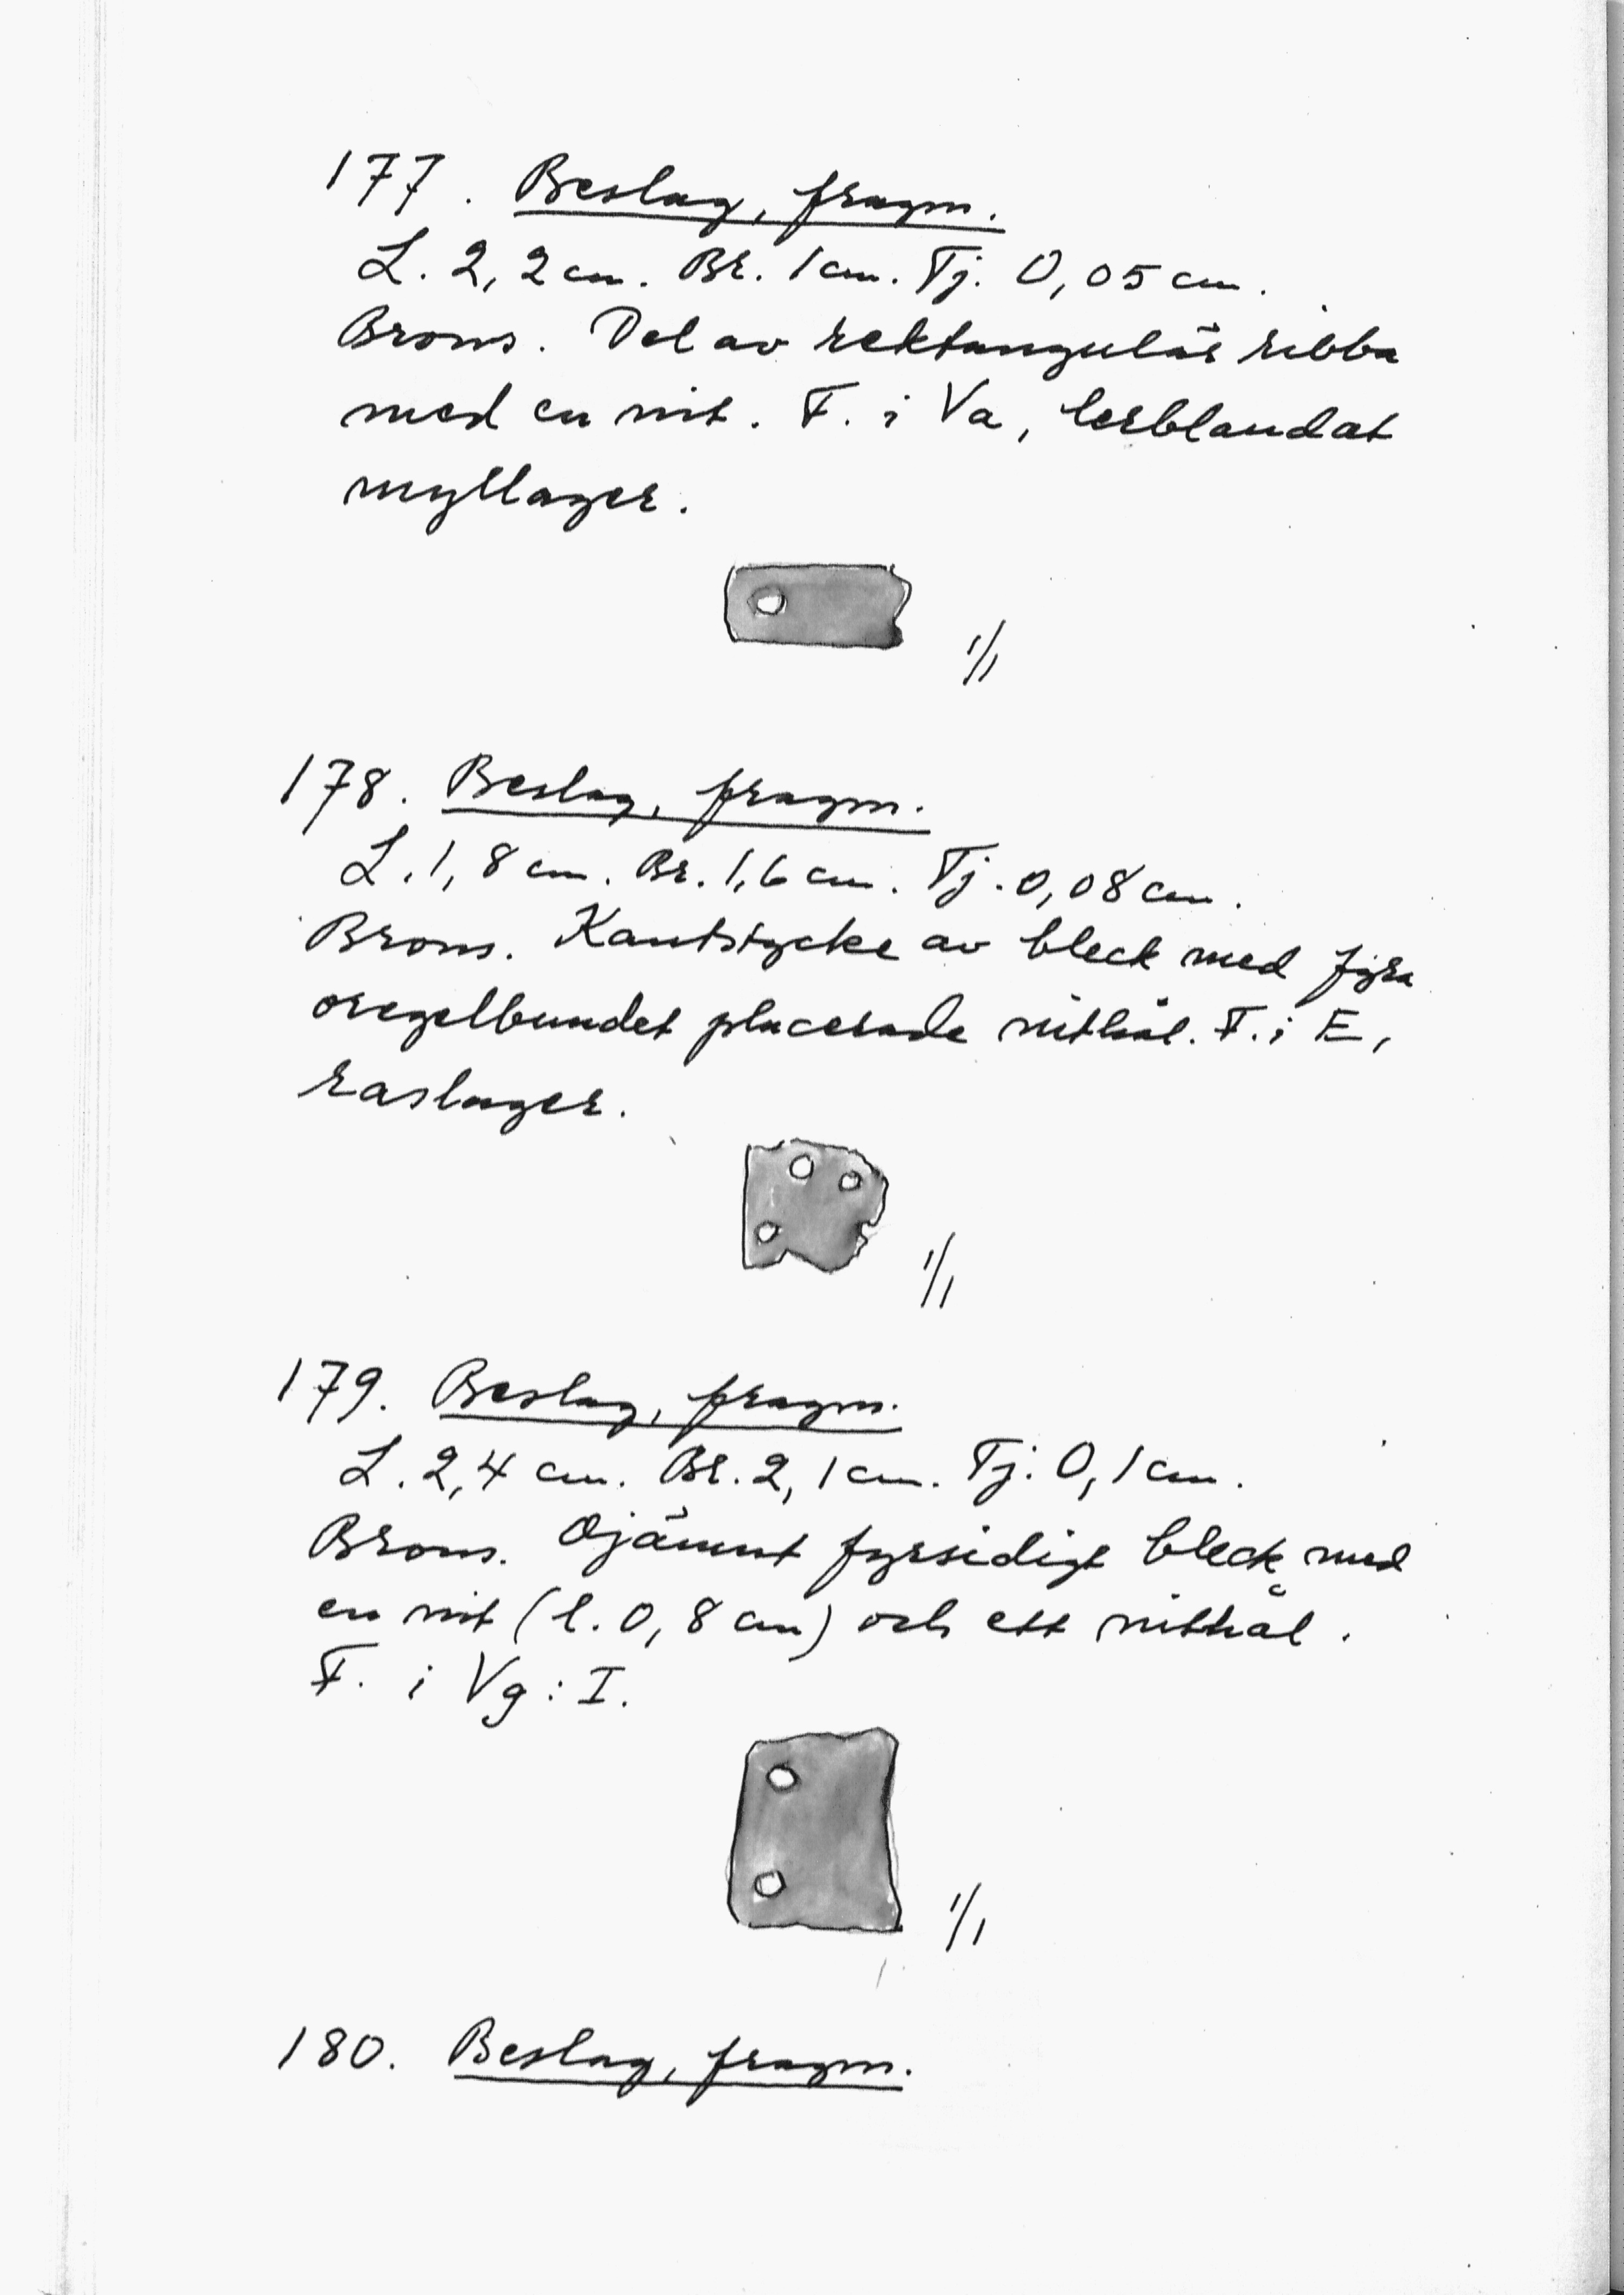 177. Beslag, fragm.
L. 2,2 cm. Br. 1 cm. Tj. 0,05 cm.
Brons. Del av rektangulär ribba
med en nit. F. i Va, lerblandat
myllager.
1/1
178. Beslag, fragm.
L. 1,8 cm. Br. 1,6 cm. Tj. 0,08 cm.
Brons. Kantstycke av bleck med fyra
oregelbundet placerade nithål. F. i E,
raslager.
1/1
179. Beslag, fragm.
L. 2,4 cm. Br. 2,1 cm. Tj. 0,1 cm.
Brons. Ojämnt fyrsidigt bleck med
en nit (l. 0,8 cm) och ett nithål.
F. i Vg: I.
1/1
180. Beslag, fragm.